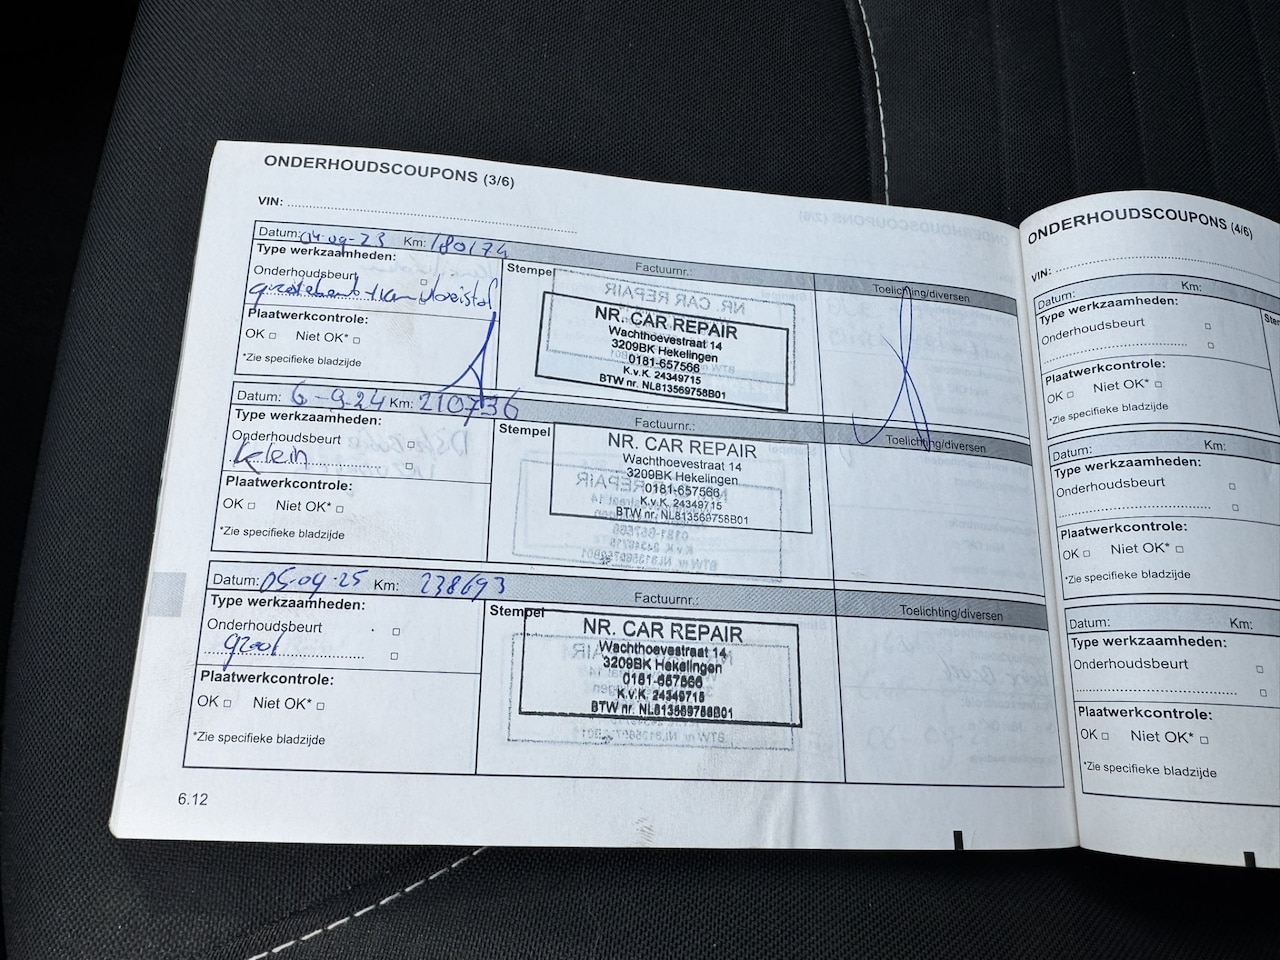 ONDERHOUDSCOUPONS (3/6)
VIN:
Datum: 04-09-23 Km: 180174
Type werkzaamheden:
Onderhoudsbeurt
grote beurt
Plaatwerkcontrole:
OK □ Niet OK* □
*Zie specifieke bladzijde
Stempel
Factuurnr.:
NR. CAR REPAIR
Wachthoevestraat 14
3209BK Hekelingen
0181-657566
K.v.K. 24349715
BTW nr. NL813569758B01
Toelichting/diversen
Datum: 6-9-24 Km: 210736
Type werkzaamheden:
Onderhoudsbeurt □
klein □
Plaatwerkcontrole:
OK □ Niet OK* □
*Zie specifieke bladzijde
Stempel
Factuurnr.:
NR. CAR REPAIR
Wachthoevestraat 14
3209BK Hekelingen
0181-657566
K.v.K. 24349715
BTW nr. NL813569758B01
Toelichting/diversen
Datum: 05-09-25 Km: 238693
Type werkzaamheden:
Onderhoudsbeurt □
groot □
Plaatwerkcontrole:
OK □ Niet OK* □
*Zie specifieke bladzijde
Stempel
Factuurnr.:
NR. CAR REPAIR
Wachthoevestraat 14
3209BK Hekelingen
0181-657566
K.v.K. 24349715
BTW nr. NL813569758B01
Toelichting/diversen
6.12
ONDERHOUDSCOUPONS (4/6)
VIN:
Datum: Km:
Type werkzaamheden:
Onderhoudsbeurt □
Plaatwerkcontrole:
OK □ Niet OK* □
*Zie specifieke bladzijde
Datum: Km:
Type werkzaamheden:
Onderhoudsbeurt □
Plaatwerkcontrole:
OK □ Niet OK* □
*Zie specifieke bladzijde
Datum: Km:
Type werkzaamheden:
Onderhoudsbeurt □
Plaatwerkcontrole:
OK □ Niet OK* □
*Zie specifieke bladzijde